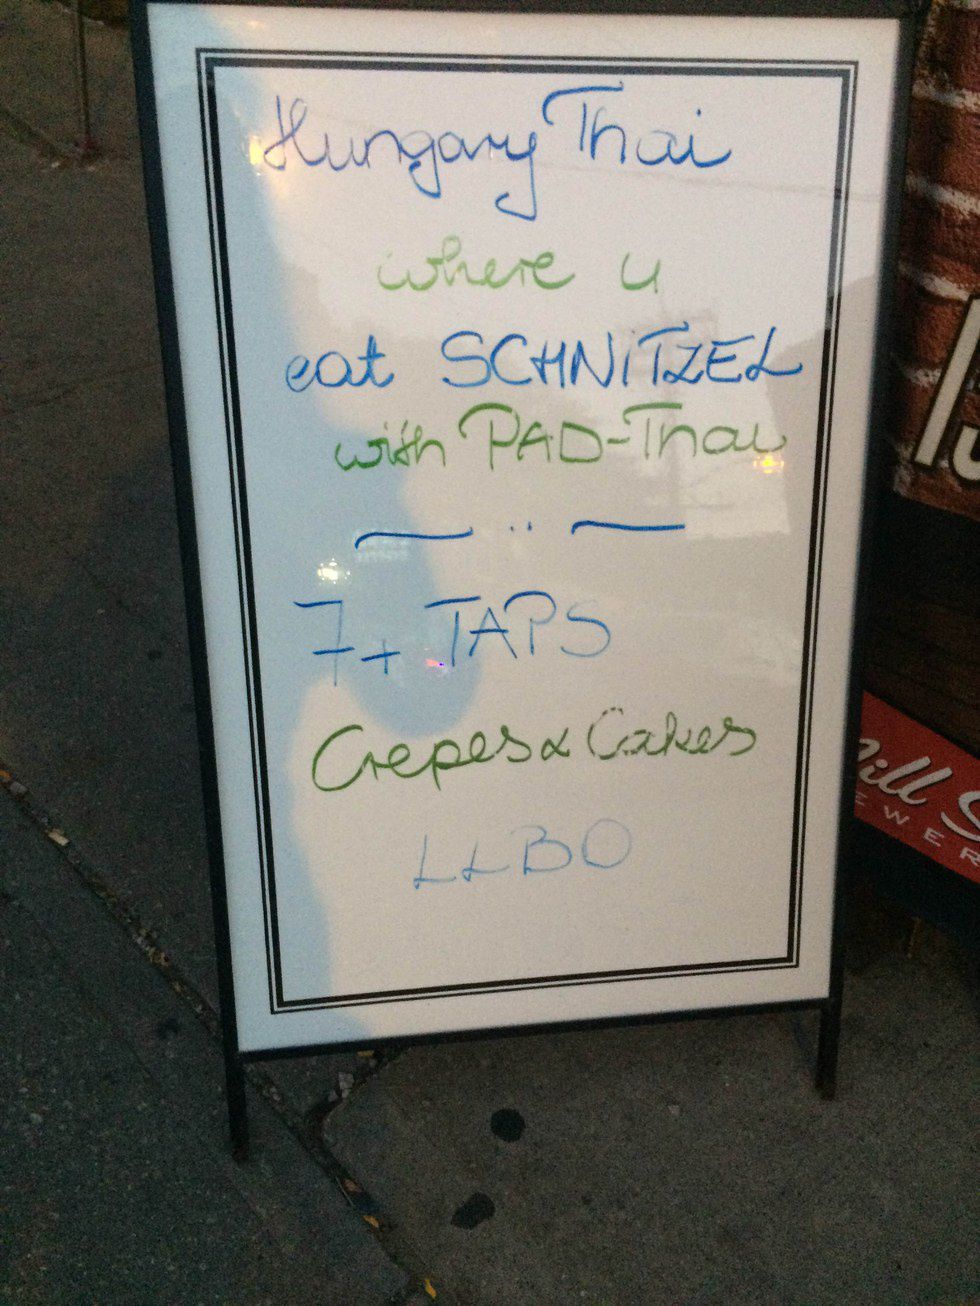 Hungary Thai
where u
eat SCHNiTZEL
with PAD-Thai
7+ TAPS
Crepes & Cakes
LLBO
ill S
EWER